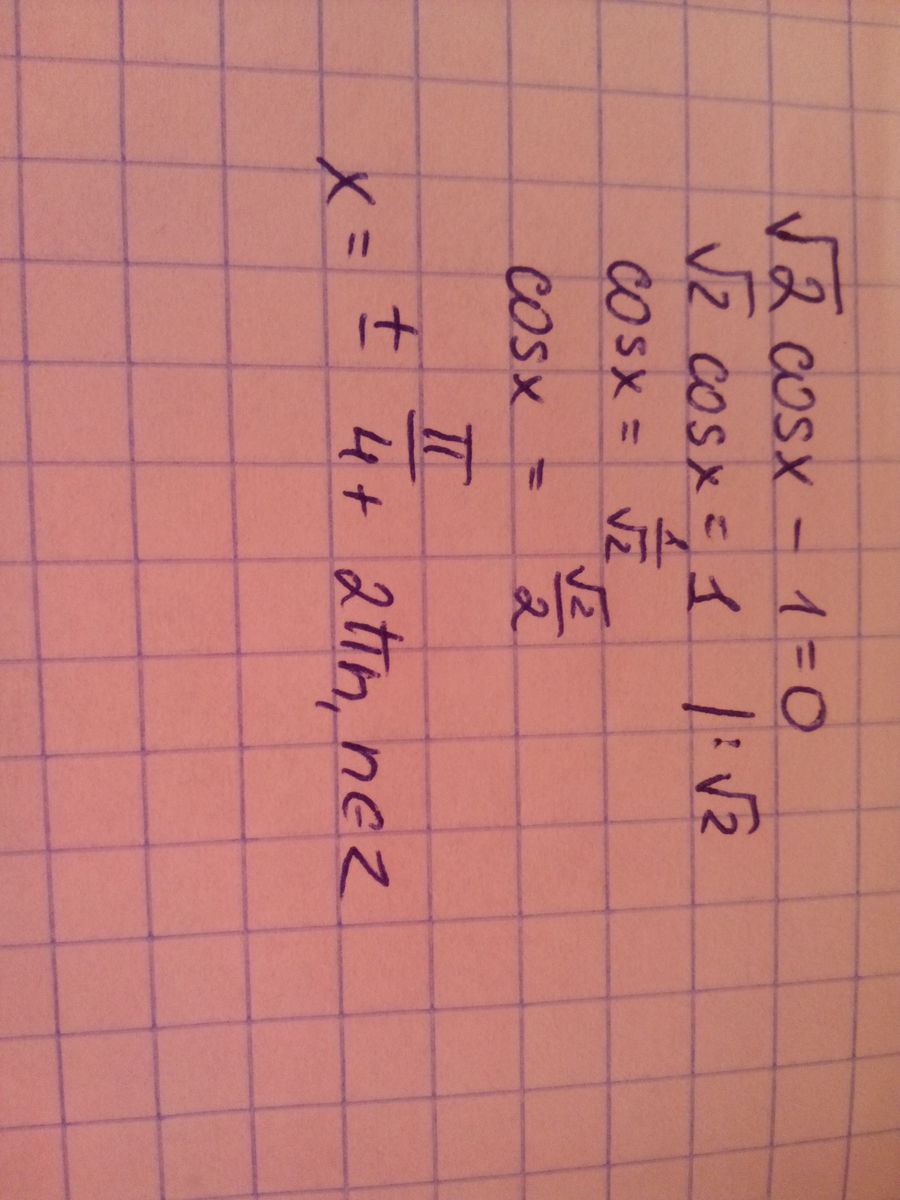 √2 cosx - 1 = 0
√2 cosx = 1 | : √2
cosx = 1/√2
cosx = √2/2
x = ± π/4 + 2πn, n∈Z